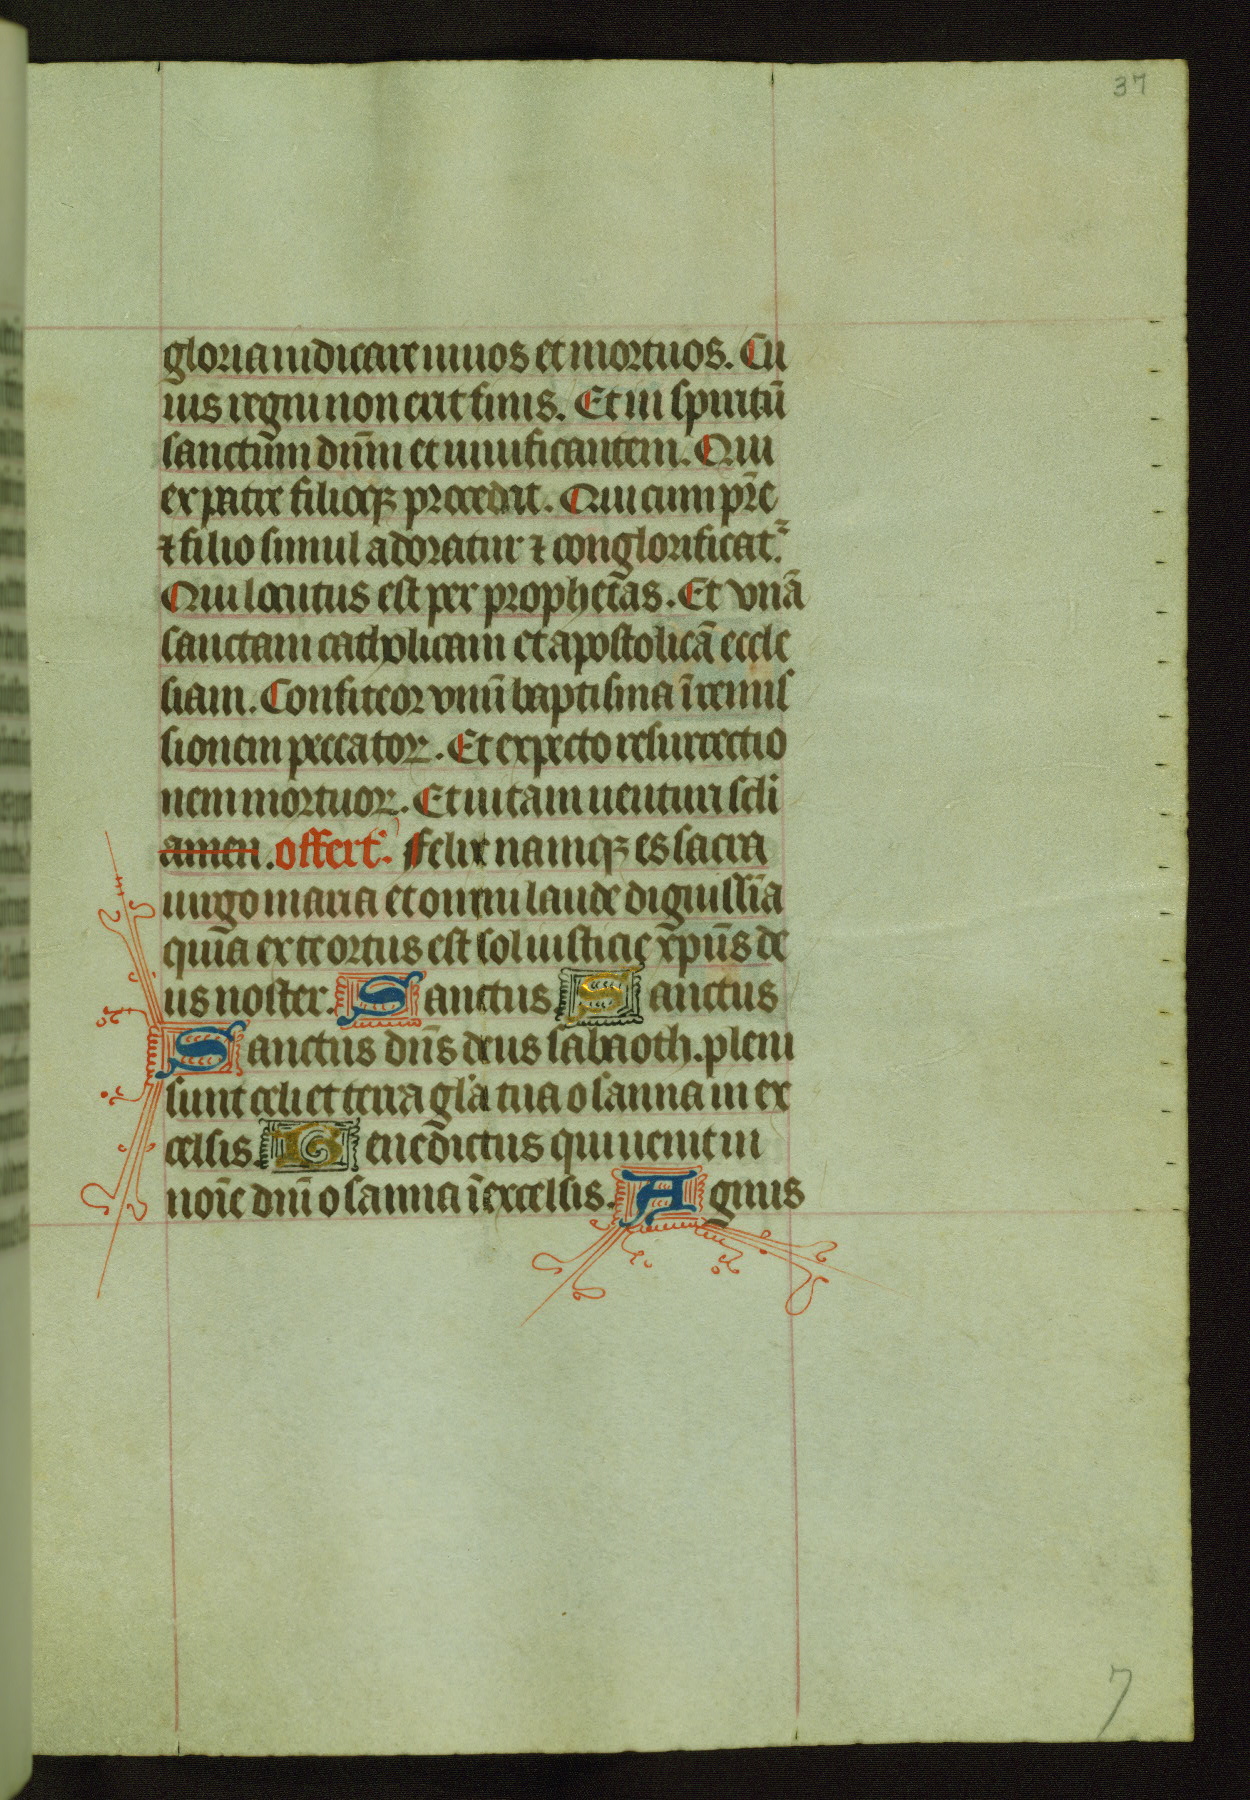 37
gloria iudicare uiuos et mortuos. Cu
ius regni non erit finis. Et in spiritū
sanctum dn̄m et uiuificantem. Qui
ex patre filioqꝫ procedit. Qui cum pr̄e
⁊ filio simul adoratur ⁊ conglorificat᷑.
Qui locutus est per prophetas. Et vnā
sanctam catholicam et apostolicā eccle
siam. Confiteor vnū baptisma ī remis
sionem peccatoꝝ. Et expecto resurrectio
nem mortuoꝝ. Et uitam uenturi scli
amen. offert᷑. Felix namqꝫ es sacra
uirgo maria et omni laude dignissīa
quia ex te ortus est sol iusticie xp̄us de
us noster. Sanctus Sanctus
Sanctus dn̄s deus sabaoth. pleni
sunt celi et terra gla tua osanna in ex
celsis. Benedictus qui uenit in
noīe dn̄i osanna ī excelsis. Agnus
7